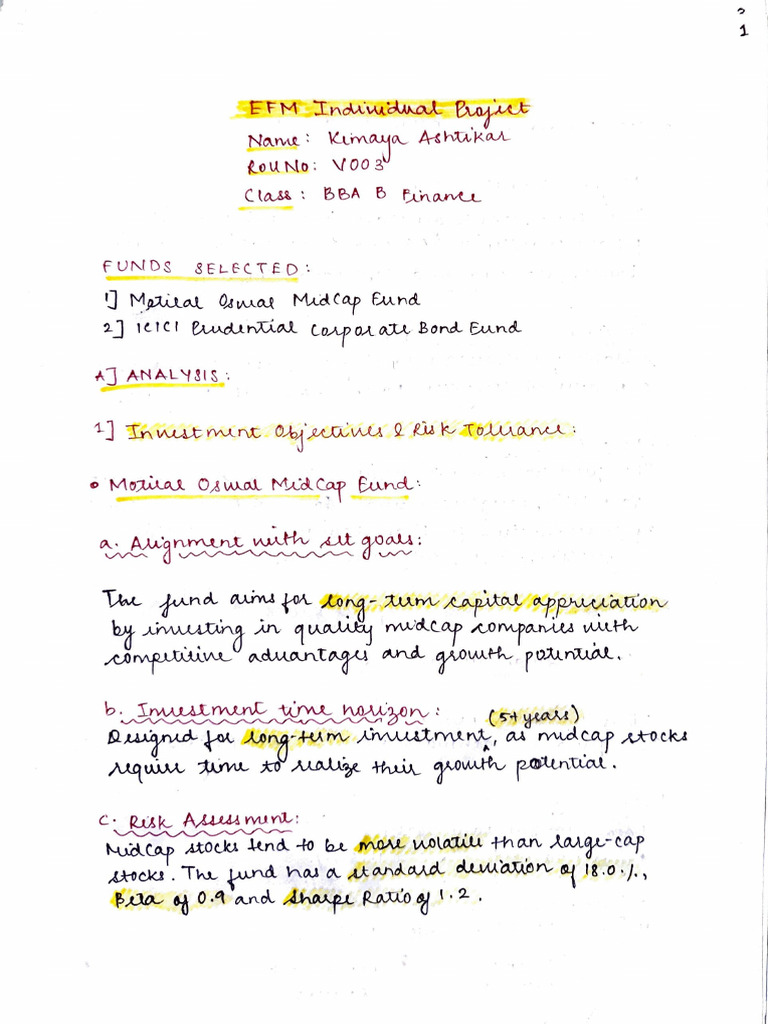 1
EFM Individual Project
Name: Kimaya Ashtikar
Roll No: V003
Class: BBA B Finance
FUNDS SELECTED:
1] Motilal Oswal MidCap Fund
2] ICICI Prudential Corporate Bond Fund
A] ANALYSIS:
1] Investment Objectives & Risk Tolerance:
• Motilal Oswal MidCap Fund:
a. Alignment with set goals:
The fund aims for long-term capital appreciation
by investing in quality midcap companies with
competitive advantages and growth potential.
b. Investment time horizon:
(5+ years)
Designed for long-term investment, as midcap stocks
require time to realize their growth potential.
c. Risk Assessment:
MidCap stocks tend to be more volatile than large-cap
stocks. The fund has a standard deviation of 18.0%,
Beta of 0.9 and Sharpe Ratio of 1.2.